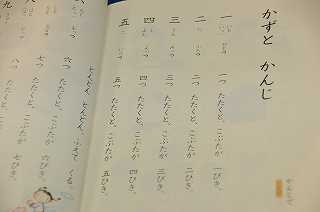 かずと かんじ
一 いち ひと 一つ たたくと、こぶたが 一ぴき。
二 に ふた 二つ たたくと、こぶたが 二ひき。
三 さん みっ 三つ たたくと、こぶたが 三びき。
四 よっ 四つ たたくと、こぶたが 四ひき。
五 ご いつ 五つ たたくと、こぶたが 五ひき。
とんとん とんとん、ふえて くる。
六つ たたくと、こぶたが 六ぴき。
七つ たたくと、こぶたが 七ひき。
八つ
九